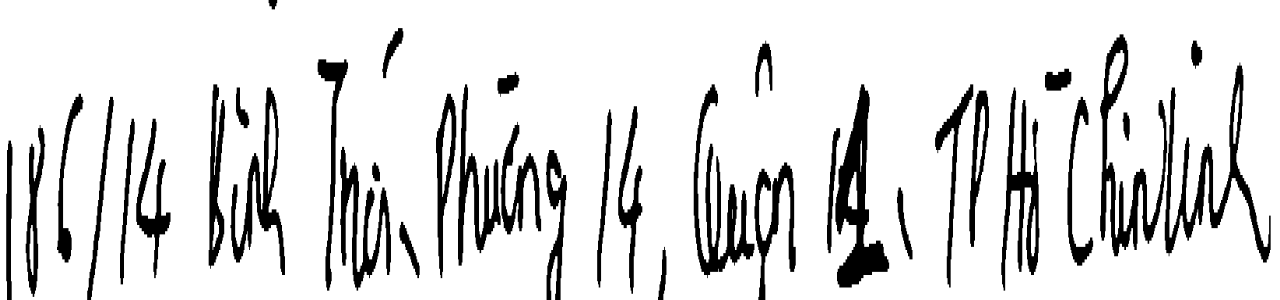 186/14 Bình Thới, Phường 14, Quận 11, TP Hồ Chí Minh